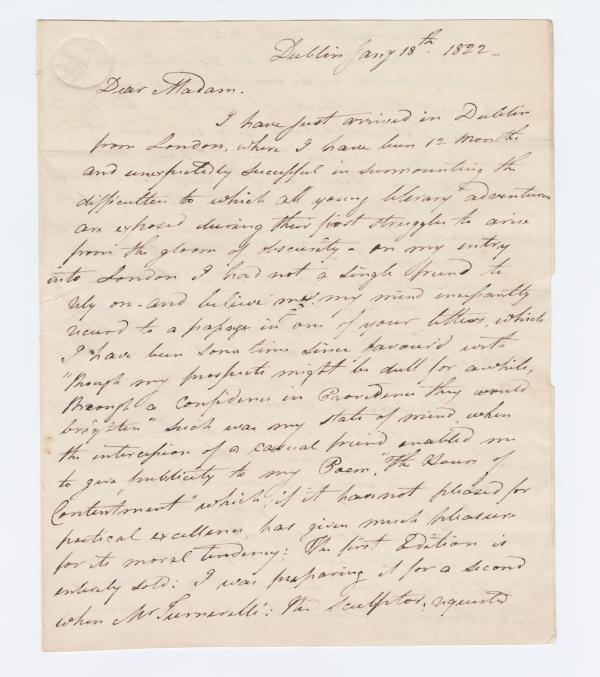 Dublin Jany 18th. 1822 -
Dear Madam.
I have just arrived in Dublin
from London, where I have been 12 Months
and unexpectedly successful in surmounting the
difficulties to which all young literary adventurers
are exposed during their first struggles to arise
from the gloom of obscurity - on my entry
into London I had not a single friend to
rely on - and believe me! my mind incessantly
recurd to a passage in one of your letters, which
I have been some time since favour'd with
"Though my prospects might be dull for a while,
through a Confidence in Providence they would
brighten" Such was my state of mind, when
the intercession of a casual friend enabled me
to give publicity to my Poem, "The Hours of
Contentment" which, if it has not pleased for
poetical excellence, has given much pleasure
for its moral tendency: The first Edition is
entirely sold: I was preparing it for a second
when Mr Turnerelli: The Sculptor, requested